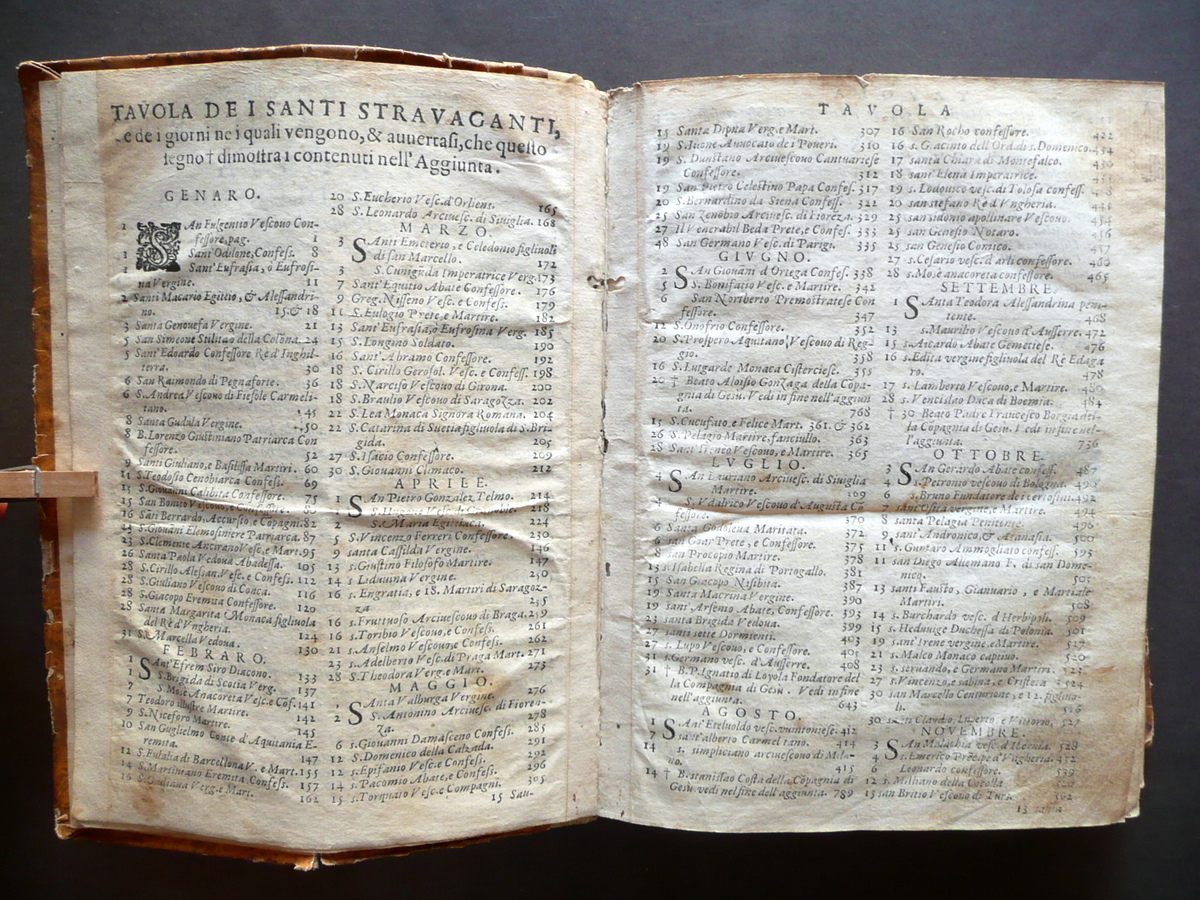 TAVOLA DE I SANTI STRAVAGANTI,
e de i giorni ne i quali vengono, & auuertasi, che questo
segno † dimostra i contenuti nell'Aggiunta.
GENARO.
1 SAn Fulgentio Vescouo Con-
fessore, pag. 1
1 Sant'Odilone, Confess. 8
1 Sant'Eufrasia, o Eufrosi-
na Vergine. 11
2 Santi Macario Egittio, & Alessandri-
no. 15. & 18
3 Santa Genouefa Vergine. 21
5 San Simeone Stilita della Colona. 24
5 Sant'Edoardo Confessore Rè d'Inghil-
terra. 30
6 San Raimondo di Pegnaforte. 36
6 S. Andrea Vescouo di Fiesole Carmeli-
tano. 45
8 Santa Gudula Vergine. 50
8 B. Lorenzo Giustiniano Patriarca Con
fessore. 52
9 Santi Giuliano, e Basilissa Martiri. 60
11 S. Teodosio Cenobiarca Confess. 69
15 S. Giouanni Calibita Confessore. 75
15 San Bonito Vescouo, e Confess. 80
16 Santi Berrardo, Accursio, e Copagni. 82
23 S. Giouani Elemosiniere Patriarca. 87
23 S. Clemente Ancirano Vesc. e Mart. 95
26 Santa Paola Vedoua Abadessa. 105
28 S. Cirillo Alessan. Vesc. e Confess. 112
28 S. Giuliano Vescouo di Conca. 116
28 S. Giacopo Eremita Confessore. 120
28 Santa Margarita Monaca figliuola
del Rè d'Vngheria. 124
31 S. Marcella Vedoua. 130
FEBRARO.
1 SAnt'Efrem Siro Diacono. 133
1 S. Brigida di Scotia Verg. 137
7 S. Mosè Anacoreta Vesc. e Cõf. 141
7 Teodoro illustre Martire. 142
9 S. Niceforo Martire. 145
10 San Guglielmo Conte d'Aquitania E-
remita. 147
12 S. Eulalia di Barcellona V. e Mart. 155
14 S. Martiniano Eremita Confess. 157
16 S. Giuliana Verg. e Mart. 162
20 S. Eucherio Vesc. d'Orliens. 165
28 S. Leonardo Arciuesc. di Siuiglia. 168
MARZO.
3 SAnti Emeterio, e Celedonio figliuoli
di san Marcello. 172
3 S. Cunigũda Imperatrice Verg. 173
7 Sant'Equitio Abate Confessore. 176
9 Greg. Nisseno Vesc. e Confess. 179
11 S. Eulogio Prete, e Martire. 182
13 Sant'Eufrasia, o Eufrosina Verg. 185
15 S. Longino Soldato. 190
16 Sant'Abramo Confessore. 192
18 S. Cirillo Gerosol. Vesc. e Confess. 198
18 S. Narciso Vescouo di Girona. 200
18 S. Braulio Vescouo di Saragozza. 202
22 S. Lea Monaca Signora Romana. 204
22 S. Catarina di Suetia figliuola di S. Bri-
gida. 205
27 S. Isacio Confessore. 209
30 S. Giouanni Climaco. 212
APRILE.
1 SAn Pietro Gonzalez Telmo. 214
218
2 S. Maria Egittiaca. 224
5 S. Vincenzo Ferreri Confessore. 230
9 santa Cassilda Vergine. 146
13 s. Giustino Filosofo Martire. 147
14 s. Liduuina Vergine. 250
16 s. Engratia, e 18. Martiri di Saragoz-
za 255
16 s. Fruttuoso Arciuescouo di Braga. 249
16 s. Toribio Vescouo, e Confess. 261
21 s. Anselmo Vescouo, e Confess. 262
23 s. Adelberto Vesc. di Praga Mart. 271
28 s. Theodora Verg. e Mar. 273
MAGGIO.
SAnta Valburga Vergine. 276
2 S. Antonino Arciuesc. di Fioren-
za. 278
6 s. Giouanni Damasceno Confess. 285
12 S. Domenico della Calzada. 291
12 s. Epifanio Vesc. e Confess. 292
14 s. Pacomio Abate, e Confess. 296
15 s. Torquato Vesc. e Compagni. 305
15 San-
TAVOLA
15 Santa Dipna Verg. e Mart. 307
19 S. Iuone Auuocato de i Poueri. 310
19 S. Dunstano Arciuescouo Cantuariese
Confessore. 312
19 San Pietro Celestino Papa Confes. 317
20 S. Bernardino da Siena Confess. 322
25 San Zenobio Arciuesc. di Fiorẽza. 329
27 Il Venerabil Beda Prete, e Confess. 333
48 San Germano Vesc. di Parigi. 335
GIVGNO.
2 SAn Giouãni d'Ortega Confes. 338
5 S. Bonifatio Vesc. e Martire. 342
6 San Norberto Premostratese Con
fessore. 347
12 S. Onofrio Confessore. 352
20 S. Prospero Aquitano, Vescouo di Reg-
gio. 358
16 S. Lutgarde Monaca Cisterciese. 355
20 † Beato Aloisio Gonzaga della Cõpa-
gnia di Gesù. Vedi in fine nell'aggiun
ta. 768
15 S. Cucufato, e Felice Mart. 361. & 362
26 S. Pelagio Martire, fanciullo. 363
28 Sant'Ireneo Vescouo, e Martire. 365
LVGLIO.
4 SAn Lauriano Arciuesc. di Siuiglia
Martire. 109
4 S. Vdalrico Vescouo d'Augusta Cõ
fessore. 370
6 Santa Godolena Maritata. 372
6 san Goar Prete, e Confess. 375
8 san Procopio Martire. 378
15 s. Isabella Regina di Portogallo. 381
15 San Giacopo Nisibita. 387
19 Santa Macrina Vergine. 390
19 sant'Arsenio Abate, Confessore. 393
23 santa Brigida Vedoua. 399
27 santi sette Dormienti. 403
27 s. Lupo Vescouo, e Confess. 405
31 s. Germano vesc. d'Auserre. 408
31 † B. P. Ignatio di Loyola Fondatore del
la Compagnia di Gesù. Vedi in fine
nell'aggiunta. 643
AGOSTO.
1 SAnt'Eteluoldo vesc. vuintoniese. 412
7 sant'alberto Carmelitano. 414
14 s. simpliciano arciuescouo di Mila-
no. 415
14 † B. stanislao Costa della Cõpagnia di
Gesù. vedi nel fine dell'aggiunta. 789
16 San Rocho confessore. 422
16 s. Giacinto dell'Ord. di s. Domenico. 434
17 santa Chiara di Montefalco.
18 sant'Elena Imperatrice.
19 s. Lodouico vesc. di Tolosa confess.
20 san stefano Rè d'Vngheria.
25 san sidonio apollinare Vescouo.
25 san Genesio Notaro.
25 san Genesio Comico. 457
27 s. Cesario vesc. d'arli confessore. 460
28 s. Mosè anacoreta confessore. 465
SETTEMBRE.
1 SAnta Teodora Alessandrina peni-
tente. 468
13 s. Maurilio Vescouo d'Ausserre. 472
15 s. Aicardo Abate Gemetiese. 476
16 s. Edita vergine figliuola del Rè Edaga
ro. 478
17 s. Lamberto Vescouo, e Martire. 480
28 s. Vencislao Duca di Boemia. 484
† 30 Beato Padre Francesco Borgia del-
la Compagnia di Gesù. Vedi in fine nel-
l'aggiunta. 736
OTTOBRE.
3 SAn Gerardo Abate confess. 487
4 s. Petronio vescouo di Bologna. 491
6 s. Bruno Fundatore de i certosini. 492
7 sant'Osita vergine, e Martire. 494
8 santa Pelagia Penitente. 496
9 sant'Andronico, & Atanasia. 500
11 s. Gumaro Ammogliato confess. 595
11 san Diego Allemano F. di san Dome-
nico. 505
13 santi Fausto, Gianuario, e Martiale
Martiri. 508
14 s. Burchardo vesc. d'Herbipoli. 509
15 s. Heduuige Duchessa di Polonia. 501
19 sant'Irene vergine, e Martire.
21 s. Malco Monaco captiuo. 520
23 s. seruando, e Germano Martiri.
27 s. Vincenzo, e sabina, e Cristeta 524
30 san Marcello Centurione, e 12. figliuo-
li. 526
30 santi Claudio, Luperto, e Vittorio. 527
NOVEMBRE.
3 SAn Malachia vesc. d'Ibernia. 528
4 s. Emerico Prẽcipe d'Vngheria. 472
6 Leonardo confessore. 539
12 s. Milliano della Cocolla
13 san Britio Vescouo di Turs. 562
13 santa